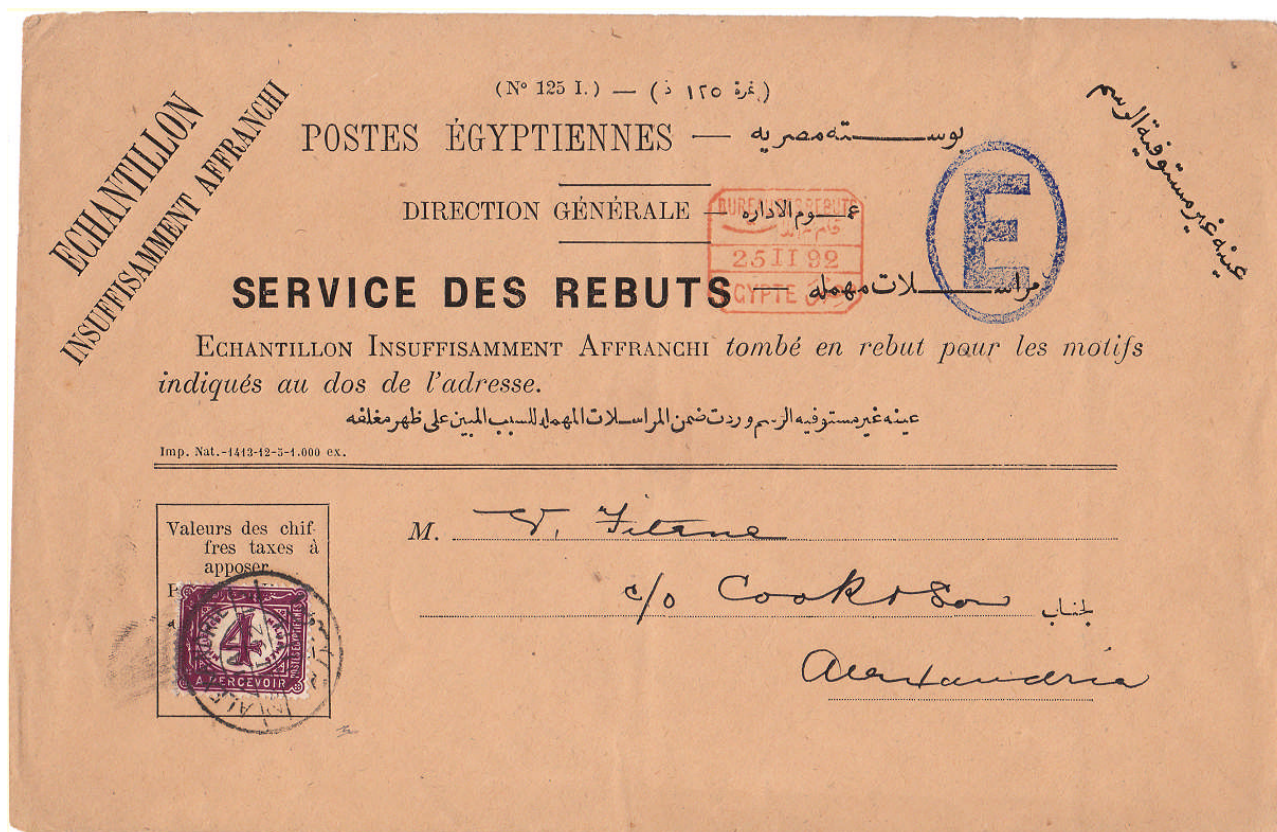 (Nº 125 I.) — (نمرة ١٢٥ ذ)
ECHANTILLON
INSUFFISAMMENT AFFRANCHI
عينه غير مستوفية الرسم
POSTES ÉGYPTIENNES — بوسته مصريه
DIRECTION GÉNÉRALE — عموم الاداره
BUREAU DES REBUTS
25 II 92
EGYPTE
E
SERVICE DES REBUTS — مراسلات مهمله
ECHANTILLON INSUFFISAMMENT AFFRANCHI tombé en rebut pour les motifs
indiqués au dos de l'adresse.
عينه غير مستوفيه الرسم وردت ضمن المراسلات المهمله للسبب المبين على ظهر مغلفه
Imp. Nat.-1413-12-5-1.000 ex.
Valeurs des chif-
fres taxes à
apposer
4
A PERCEVOIR
POSTES EGYPTIENNES
M. V.
c/o Cook & Son لجناب
Alexandria